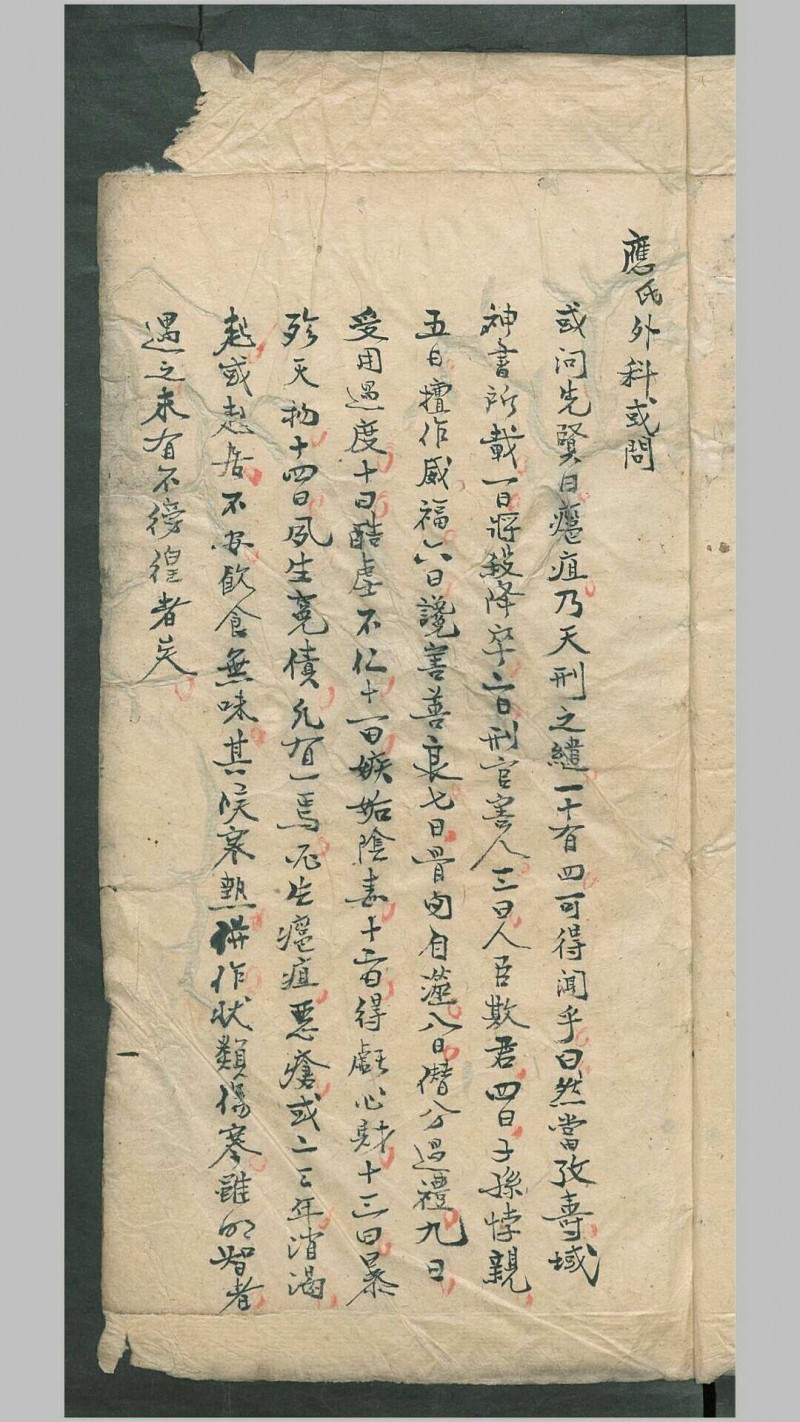 應氏外科或問
或问先賢曰癰疽乃天刑之譴一十有四可得闻乎曰然當攷壽域
神書所載一曰將殺降卒二曰刑官害人三曰人臣欺君四曰子孫悖親
五曰擅作威福六曰讒害善良七曰骨肉自滛八曰僭分過禮九曰
受用過度十曰酷虐不仁十一曰嫉妬陰毒十二曰得虧心財十三曰暴
殄天物十四曰夙生寃債凢有一焉必生癰疽惡瘡或二三年消渴
起或起居不安飲食無味其候寒熱併作状類傷寒雖明智者
遇之未有不徬徨者矣